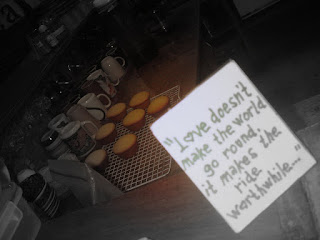 "Love doesn't
make the world
go round,
it makes the
ride
worthwhile..."